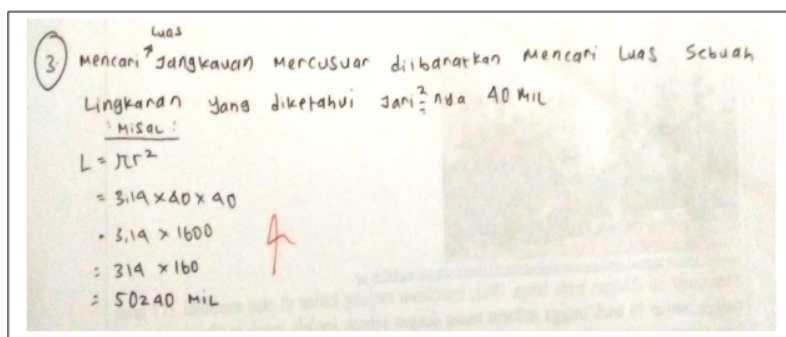 Luas
3. Mencari Jangkauan Mercusuar diibaratkan Mencari Luas Sebuah
Lingkaran yang diketahui Jari²nya 40 MIL
Misal :
L = πr²
= 3,14 × 40 × 40
= 3,14 × 1600
= 314 × 160
= 50240 MIL
4